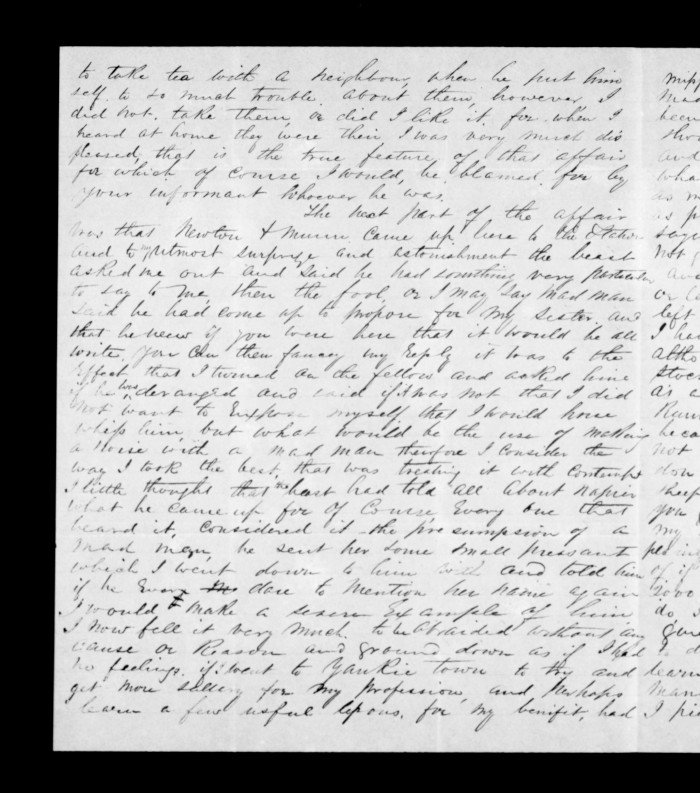 to take tea with a neighbour, when he put him
self to so much trouble about them, however, I
did not take them, or did I like it, for when I
heard at home they were their I was very much dis
pleased, that is the true feature of that affair
for which of course I would, be blamed for by
your informant whoever he was.
The next part of the affair
was that Newton & Munn came up here to the Station
and to my utmost surprise and astonishment the beast
asked me out and said he had something very particular
to say to me, then the fool, or I may say mad man
said he had come up to propose for my sister, and
that he new if you were here that it would be all
write, you can then fancy my reply it was to the
Effect that I turned on the fellow and asked him
if he was deranged and said if it was not that I did
not want to Expose myself that I would horse
whip him, but what would be the use of making
a noise with a mad man therefore I consider the
way I took the best, that was treating it with contempt
I little thought that the beast had told all about Napier
what he came up for of Course Every one that
heard it, considered it the presumpsion of a
mad man, he sent her some small pressant
which I went down to him with and told him
if he Ever dare to mention her name again
I would make a severe Example of him
I now fell it very much, to be abraided without any
cause or Reason and ground down as if I had
no feelings, if I went to Yankie town to try and
get more sallery for my profession, and, perhaps
learn a few usful lepons, for my benifit, had
been
and
wha
as m
is p
saye
not
or
left
I hea
athe
as a
not
don
you
my
of if
2000
do
give
learn
man
I pi